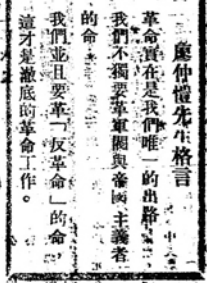 廖仲愷先生格言
革命實在是我們唯一的出路,
我們不獨要革軍閥與帝國主義者
的命,
我們並且要革「反革命」的命,
這才是澈底的革命工作。